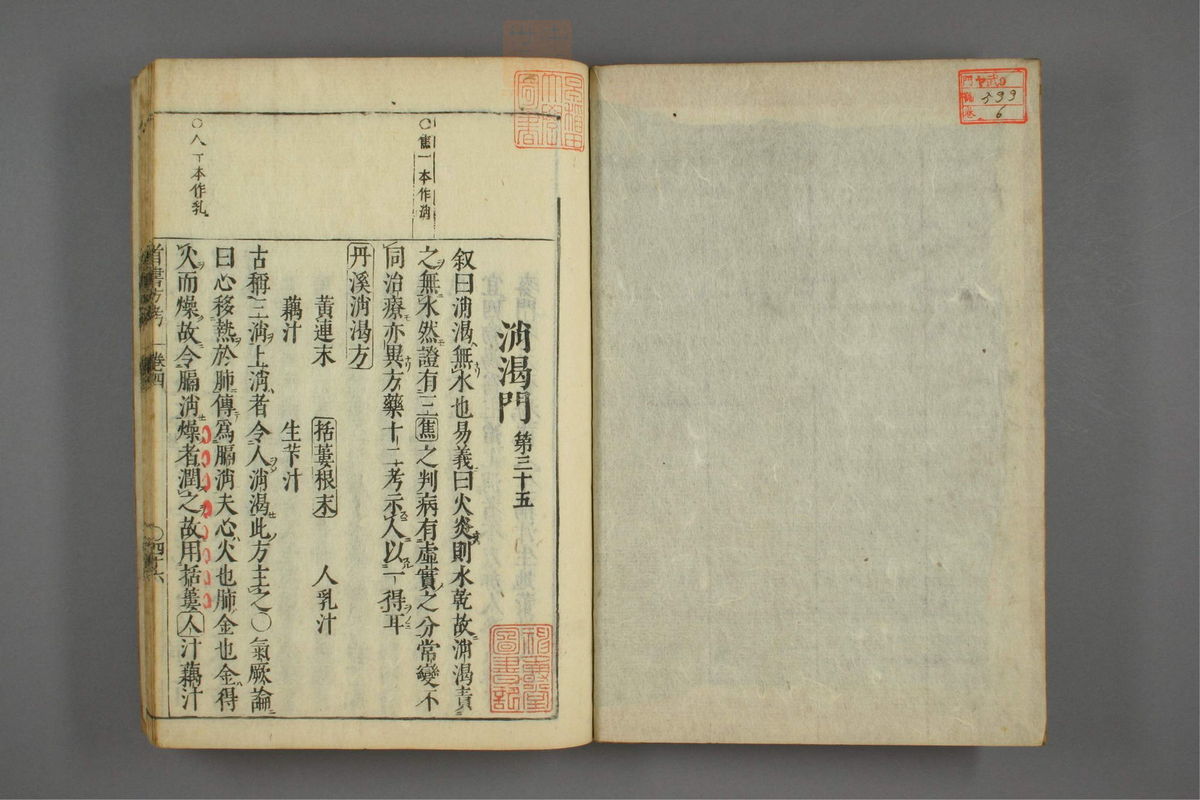 消渴門第三十五
叙曰消渴無水也易義曰火炎則水乾故消渴責
之無水然證有三焦之判病有虛實之分常變不
同治療亦異方藥十二考示人以一得耳
丹溪消渴方
黃連末 栝蔞根末 人乳汁
藕汁 生苄汁
古稱三消上消者令人消渴此方主之〇氣厥論
曰心移熱於肺傳爲膈消夫心火也肺金也金得
火而燥故令膈消燥者潤之故用栝蔞人汁藕汁
〇焦一本作消
〇人下本作乳
卷四
〇四十六
599
6